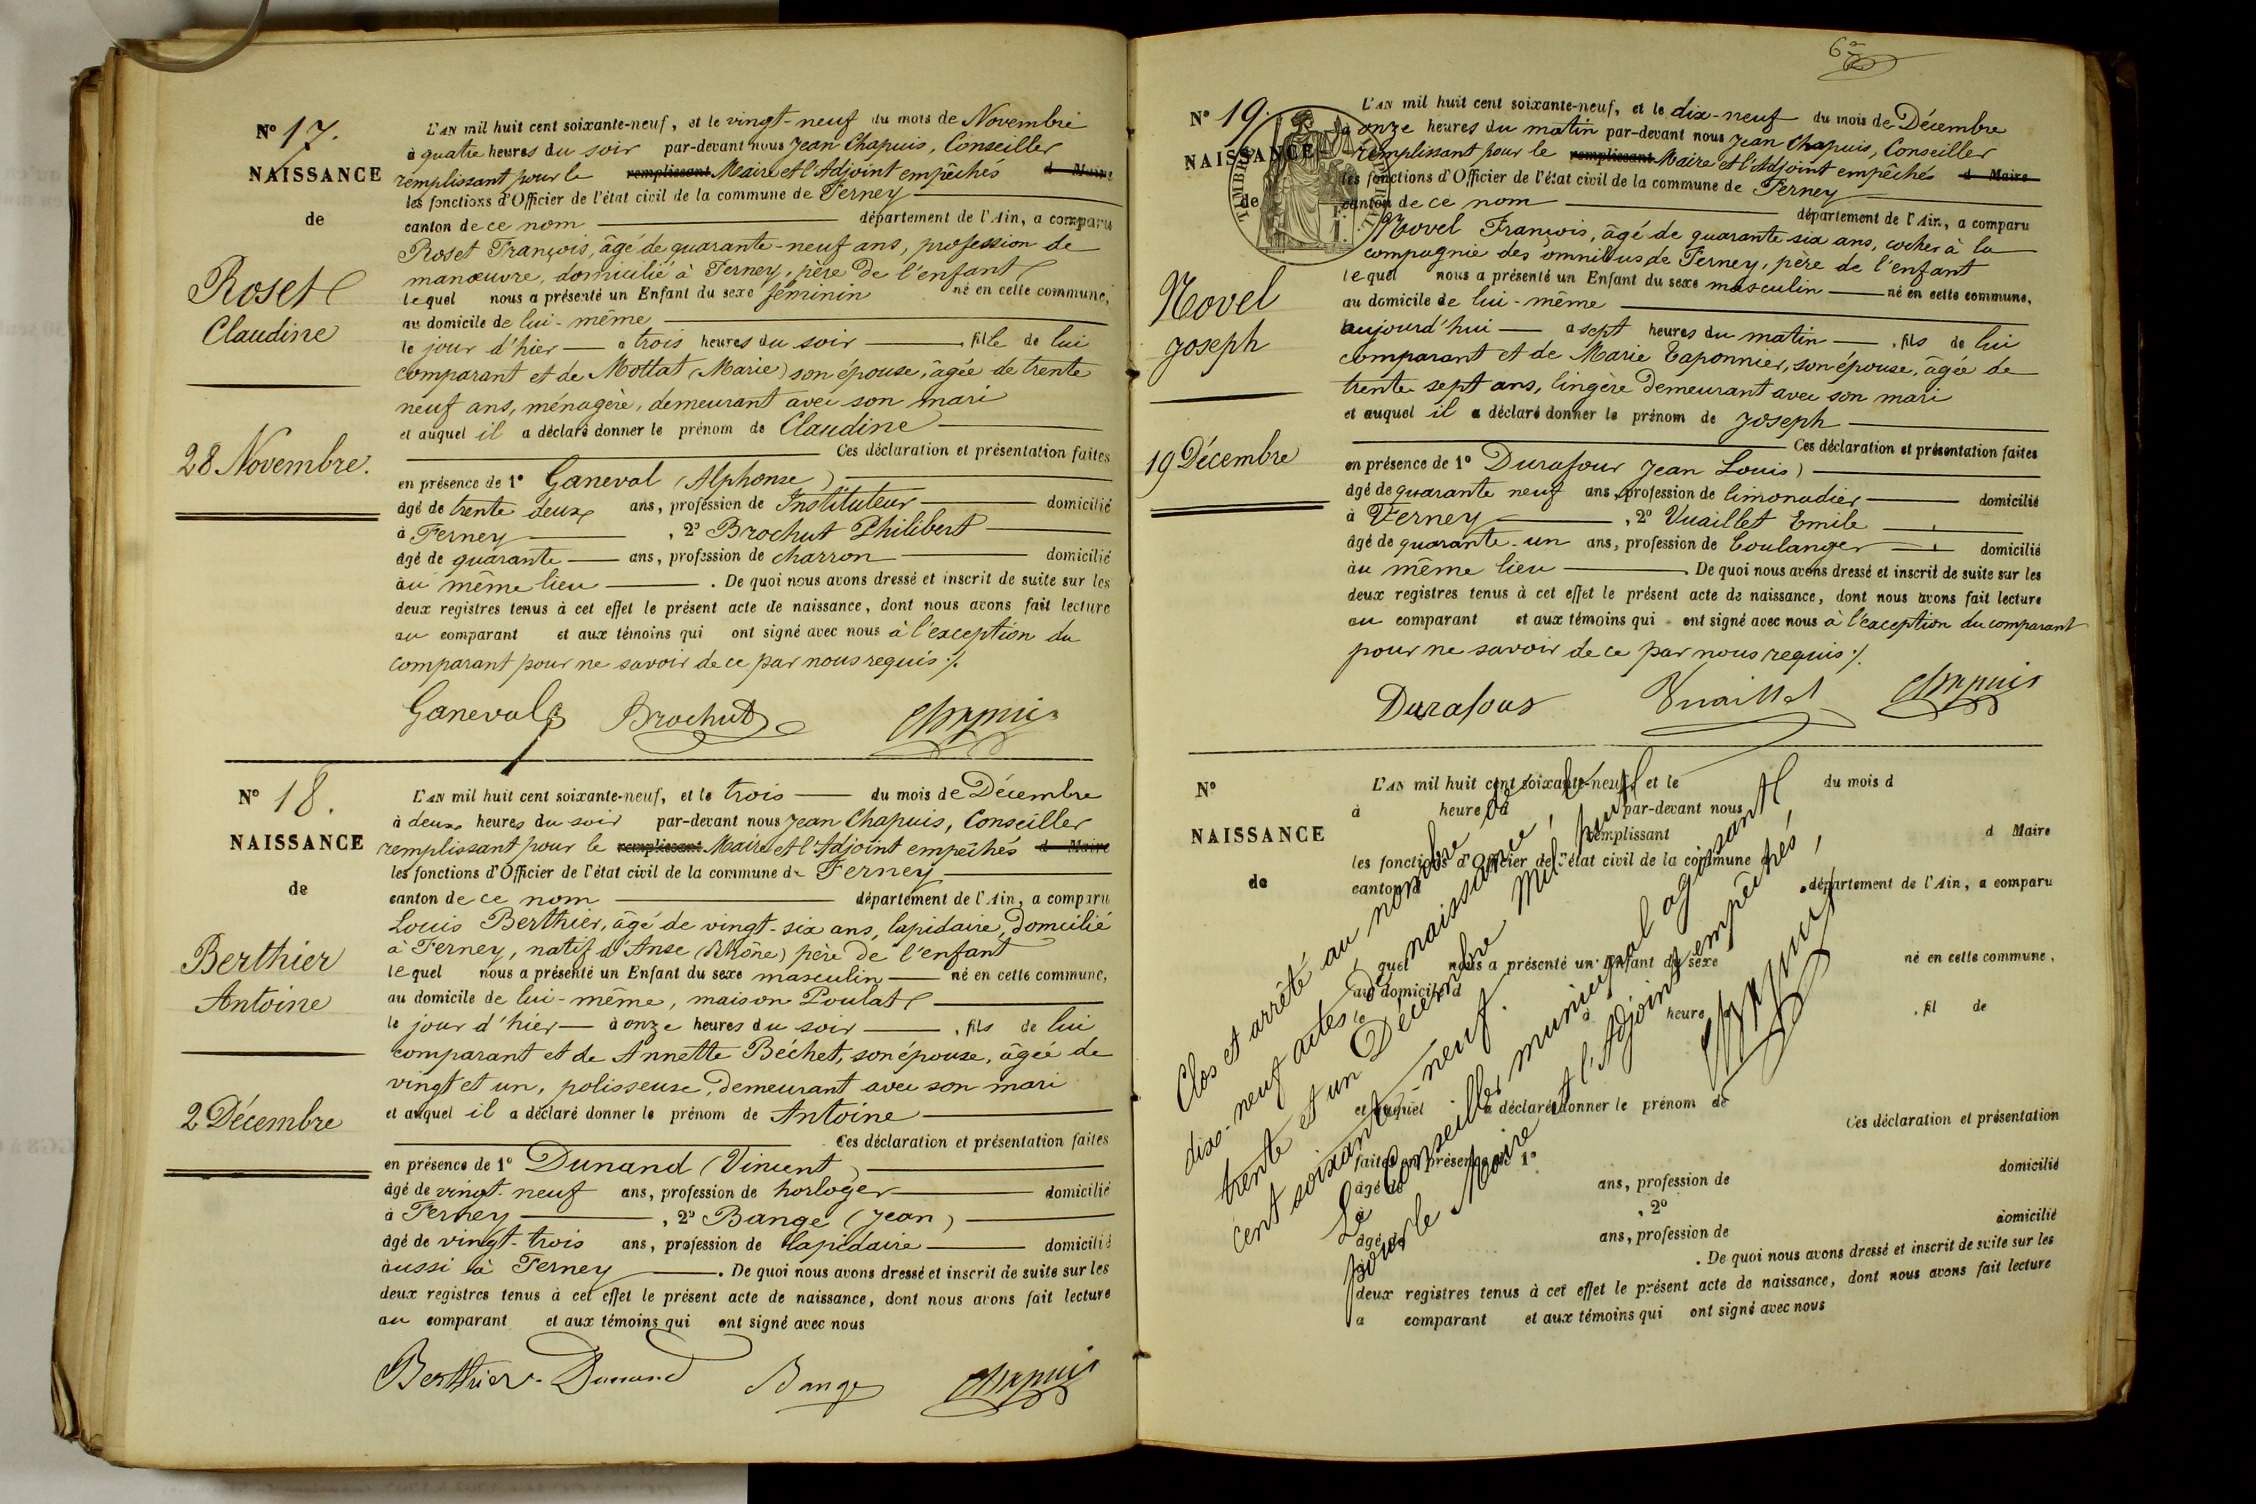 N° 17.
NAISSANCE
de
Roset
Claudine
28 Novembre.
L'AN mil huit cent soixante-neuf, et le vingt-neuf du mois de Novembre
à quatre heures du soir par-devant nous Jean Chapuis, Conseiller
remplissant pour le remplissant Maire et l'Adjoint empêchés d Maire
les fonctions d'Officier de l'état civil de la commune de Ferney
canton de ce nom département de l'Ain, a comparu
Roset François, âgé de quarante-neuf ans, profession de
manœuvre, domicilié à Ferney, père de l'enfant
lequel nous a présenté un Enfant du sexe féminin né en cette commune,
au domicile de lui-même
le jour d'hier à trois heures du soir fille de lui
comparant et de Mottat (Marie) son épouse, âgée de trente
neuf ans, ménagère, demeurant avec son mari
et auquel il a déclaré donner le prénom de Claudine
Ces déclaration et présentation faites
en présence de 1° Ganeval (Alphonse)
âgé de trente deux ans, profession de Instituteur domicilié
à Ferney , 2° Brochut Philibert
âgé de quarante ans, profession de charron domicilié
au même lieu . De quoi nous avons dressé et inscrit de suite sur les
deux registres tenus à cet effet le présent acte de naissance, dont nous avons fait lecture
au comparant et aux témoins qui ont signé avec nous à l'exception du
comparant pour ne savoir de ce par nous requis ./.
Ganeval Brochut Chapuis
N° 18.
NAISSANCE
de
Berthier
Antoine
2 Décembre
L'AN mil huit cent soixante-neuf, et le trois du mois de Décembre
à deux heures du soir par-devant nous Jean Chapuis, Conseiller
remplissant pour le remplissant Maire et l'Adjoint empêchés d Maire
les fonctions d'Officier de l'état civil de la commune de Ferney
canton de ce nom département de l'Ain, a comparu
Louis Berthier, âgé de vingt-six ans, lapidaire, domicilié
à Ferney, natif d'Anse (Rhône) père de l'enfant
lequel nous a présenté un Enfant du sexe masculin né en cette commune,
au domicile de lui-même, maison Poulat
le jour d'hier à onze heures du soir , fils de lui
comparant et de Annette Béchet, son épouse, âgée de
vingt et un, polisseuse, demeurant avec son mari
et auquel il a déclaré donner le prénom de Antoine
Ces déclaration et présentation faites
en présence de 1° Dunand (Vincent)
âgé de vingt-neuf ans, profession de horloger domicilié
à Ferney , 2° Bange (Jean)
âgé de vingt-trois ans, profession de lapidaire domicilié
aussi à Ferney . De quoi nous avons dressé et inscrit de suite sur les
deux registres tenus à cet effet le présent acte de naissance, dont nous avons fait lecture
au comparant et aux témoins qui ont signé avec nous
Berthier Dunand Bange Chapuis
6
N° 19.
NAISSANCE
de
TIMBRE IMPÉRIAL
Novel
Joseph
19 Décembre
L'AN mil huit cent soixante-neuf, et le dix-neuf du mois de Décembre
à onze heures du matin par-devant nous Jean Chapuis, Conseiller
remplissant pour le remplissant Maire et l'Adjoint empêchés d Maire
les fonctions d'Officier de l'état civil de la commune de Ferney
canton de ce nom département de l'Ain, a comparu
Novel François, âgé de quarante six ans, cocher à la
compagnie des omnibus de Ferney, père de l'enfant
lequel nous a présenté un Enfant du sexe masculin né en cette commune,
au domicile de lui-même
aujourd'hui à sept heures du matin , fils de lui
comparant et de Marie Taponnier, son épouse, âgée de
trente sept ans, lingère demeurant avec son mari
et auquel il a déclaré donner le prénom de Joseph
Ces déclaration et présentation faites
en présence de 1° Durafour Jean Louis)
âgé de quarante neuf ans, profession de limonadier domicilié
à Ferney , 2° Vuaillet Emile
âgé de quarante-un ans, profession de boulanger domicilié
au même lieu . De quoi nous avons dressé et inscrit de suite sur les
deux registres tenus à cet effet le présent acte de naissance, dont nous avons fait lecture
au comparant et aux témoins qui ont signé avec nous à l'exception du comparant
pour ne savoir de ce par nous requis ./.
Durafour Vuaillet Chapuis
N°
NAISSANCE
de
L'AN mil huit cent soixante-neuf, et le du mois d
à heure d par-devant nous
remplissant d Maire
les fonctions d'Officier de l'état civil de la commune d
canton d département de l'Ain, a comparu
quel nous a présenté un Enfant du sexe né en cette commune,
au domicile d
le à heure , fil de
et auquel a déclaré donner le prénom de
Ces déclaration et présentation
faites en présence de 1°
âgé de ans, profession de domicilié
à , 2°
âgé de ans, profession de domicilié
. De quoi nous avons dressé et inscrit de suite sur les
deux registres tenus à cet effet le présent acte de naissance, dont nous avons fait lecture
a comparant et aux témoins qui ont signé avec nous
Clos et arrêté au nombre de
dix-neuf actes de naissance, le
trente et un Décembre mil huit
cent soixante-neuf.
Le Conseiller municipal agissant
pour le Maire et l'Adjoint empêchés,
Chapuis